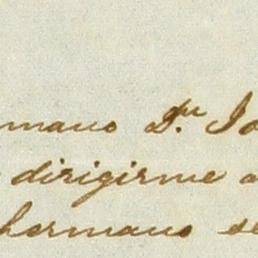 mano Dn. Jo
dirigirme a
hermano se